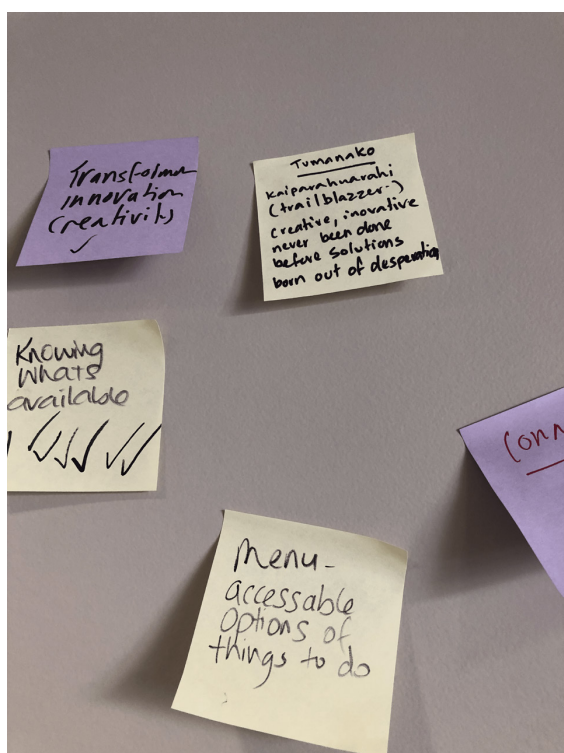 innovation
(creativity)
Tumanako
kaiparahuarahi
(trailblazzer-)
creative, inovative
never been done
before solutions
born out of desperation
Knowing
whats
available
Conn
menu-
accessable
options of
things to do